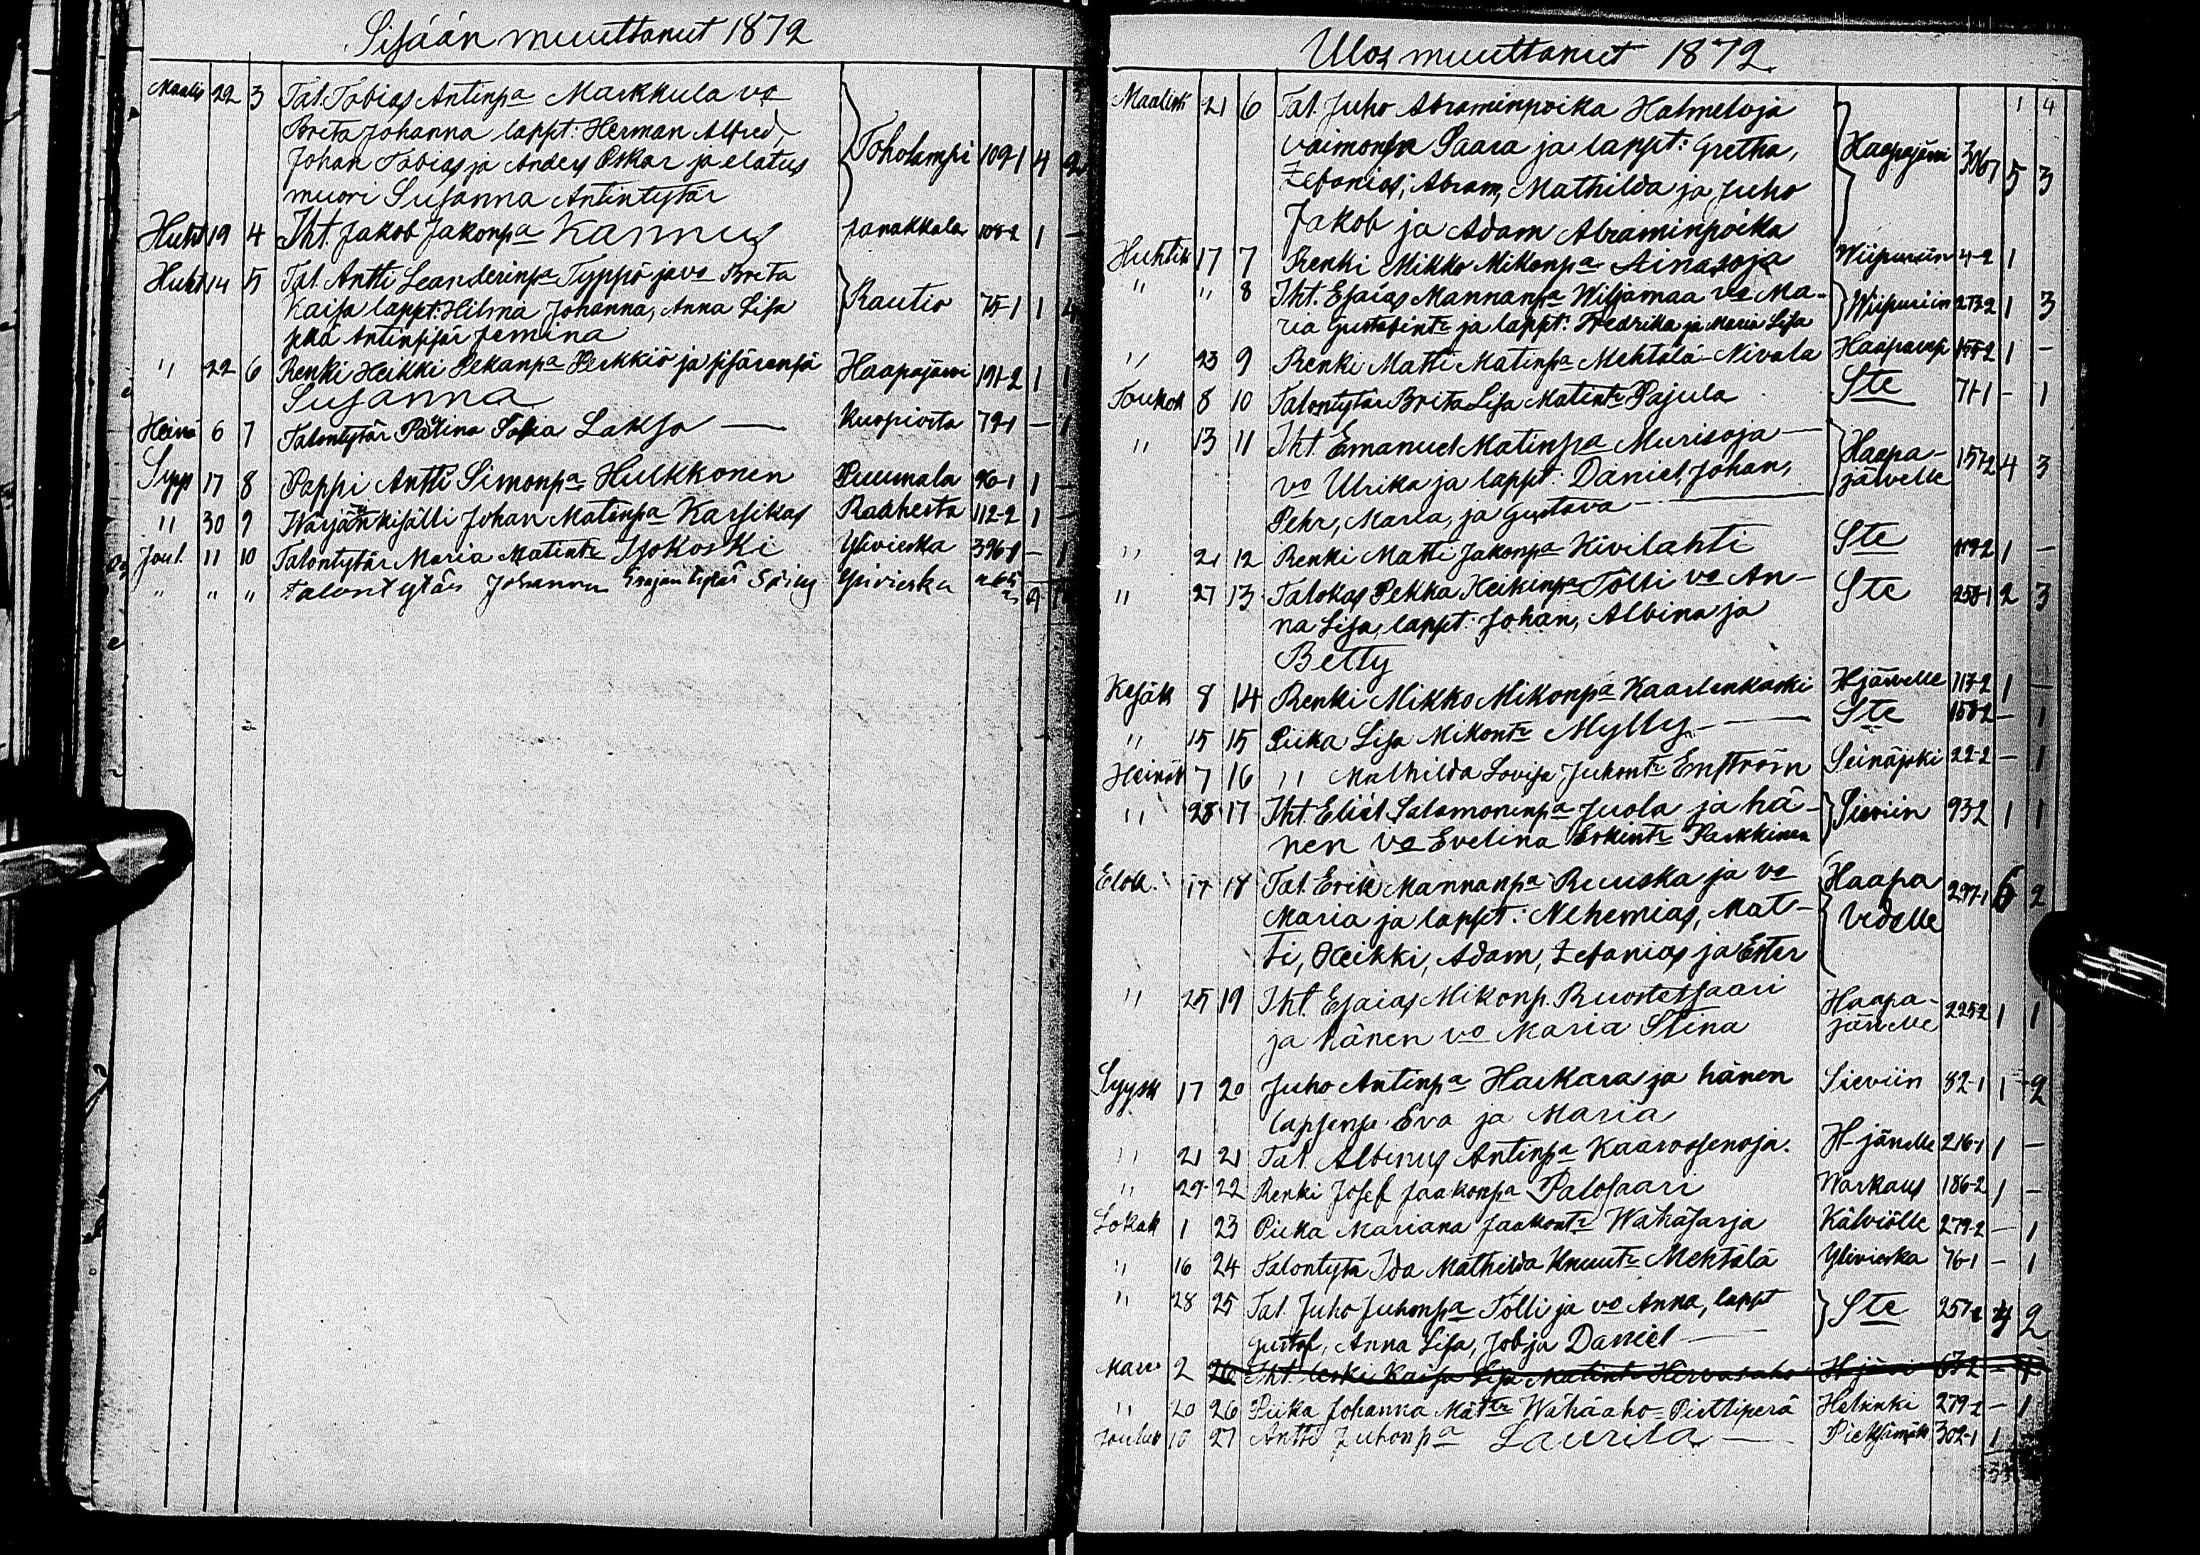 Sisään muuttanut 1872
Maalis 22 3 Tal. Tobias Antinpa Markkula vo
Brita Johanna lappt: Herman Alfred, Toholampi 109-1 4 2
Johan Tobias ja Anders Oskar ja elatus
muori Susanna Antintytär
Huht 19 4 Iht. Jakob Jakonpa Kannus Janakkala 108-2 1 -
Huht 14 5 Tal. Antti Leanderinpa Typpö ja vo Brita
Kaisa lappt: Hilma Johanna, Anna Lisa Rautio 75-1 1 4
Antin sisär Jemina
" 22 6 Renki Heikki Pekanpa Perkkiö ja sisärensä Haapajärvi 191-2 1 1
Susanna
Heinä 6 7 Talontytär Sofia Lakso — Kuopiosta 79-1 - 1
Syys 17 8 Pappi Antti Simonpa Hulkkonen Puumala 96-1 1 -
" 30 9 Wärjärinkisälli Johan Matinpa Karsikas Raahesta 112-2 1 -
Joul. 11 10 Talontytär Maria Matintr Isokoski Ylivieska 396-1 - 1
" " " talontytär Johanna Ylivieska
Ulos muuttanut 1872.
1 4
Maalisk 21 6 Tal. Juho Abraminpoika Halmeloja
vaimonsa Saara ja lappt: Gretha, Haapajärvi 306-1 5 3
Zefanias, Abram, Mathilda ja Juho
Jakob ja Adam Abraminpoika
Huhtik 17 7 Renki Mikko Mikonpa Ainasoja Wiipuriin 4-2 1
" " 8 Iht. Esaias Mannanpa Wiljamaa vo Ma-
ria Gustafintr ja lappt: Fredrika ja Maria Lisa Wiipuriin 273-2 1 3
" 23 9 Renki Matti Matinpa Mehtälä-Nivala 155-2 1 -
Toukok 8 10 Talontytär Brita Lisa Matintr Pajula Ste 71-1 - 1
" 13 11 Iht. Emanuel Matinpa Murisoja — Haapa-
vo Ulrika ja lappt: Daniel, Johan, järvelle 157-2 4 3
Pehr, Maria, ja Gustava —
" 21 12 Renki Matti Jakonpa Kivilahti Ste 119-2 1 -
" 27 13 Talokas Pekka Heikinpa Tölli vo An- Ste 258-1 2 3
na Lisa, lappt: Johan, Albina ja
Betty
Kesäk 8 14 Renki Mikko Mikonpa Kaarlenkaski H-järvelle 117-2 1 -
" 15 15 Piika Lisa Mikontr Mylly — Ste 158-2 - 1
Heinäk 7 16 " Mathilda Lovisa Juhontr Enström Seinäjoki 22-2 - 1
" 28 17 Iht. Eliel Salomoninpa Juola ja hä-
nen vo Evelina Erkintr Parkkinen Sieviin 93-2 1 1
Elok. 17 18 Tal. Erik Mannanpa Ruuska ja vo Haapa
Maria ja lappt: Nehemias, Mat- vedelle 297-1 6 2
ti, Heikki, Adam, Zefanias ja Ester
" 25 19 Iht. Esaias Mikonp. Ruostetsaari Haapa-
ja hänen vo Maria Stina järvelle 225-2 1 1
Syysk 17 20 Juho Antinpa Harkara ja hänen Sieviin 82-1 1 2
lapsensa Eva ja Maria
" 21 21 Tal. Albinus Antinpa Kaarossenoja. H-järvelle 216-1 1 -
" 29 22 Renki Josef Jaakonpa Palosaari Warkaus 186-2 1 -
Lokak 1 23 Piika Mariana Jaakontr Wähäsarja Kälviölle 279-2 - 1
" 16 24 Talontytä Ida Mathilda Knuutr Mehtälä Ylivieska 76-1 - 1
" 28 25 Tal. Juho Juhonpa Tölli ja vo Anna, lappt Ste 257-2 2
Gustaf, Anna Lisa, Job ja Daniel —
Marr 2 26 Iht. leski Kaisa Lisa Matintr 67-2 - 1
" 20 26 Piika Johanna Mattr Wähäaho-Pirttiperä Helsinki 279-2 - 1
Jouluk 10 27 Antti Juhonpa Laurila — Pieksämäk 302-1 1